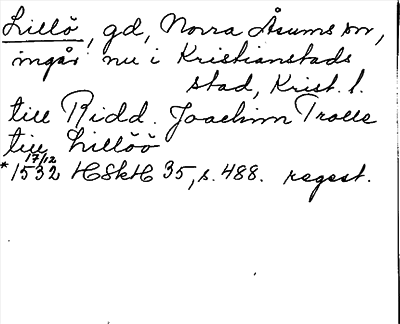 Lillö, gd, Norra Åsums sn,
ingår nu i Kristianstads
stad, Krist. l.
till Ridd. Joachim Trolle
till Lillöö
17/12
*1532 HSkH 35, s. 488. regest.